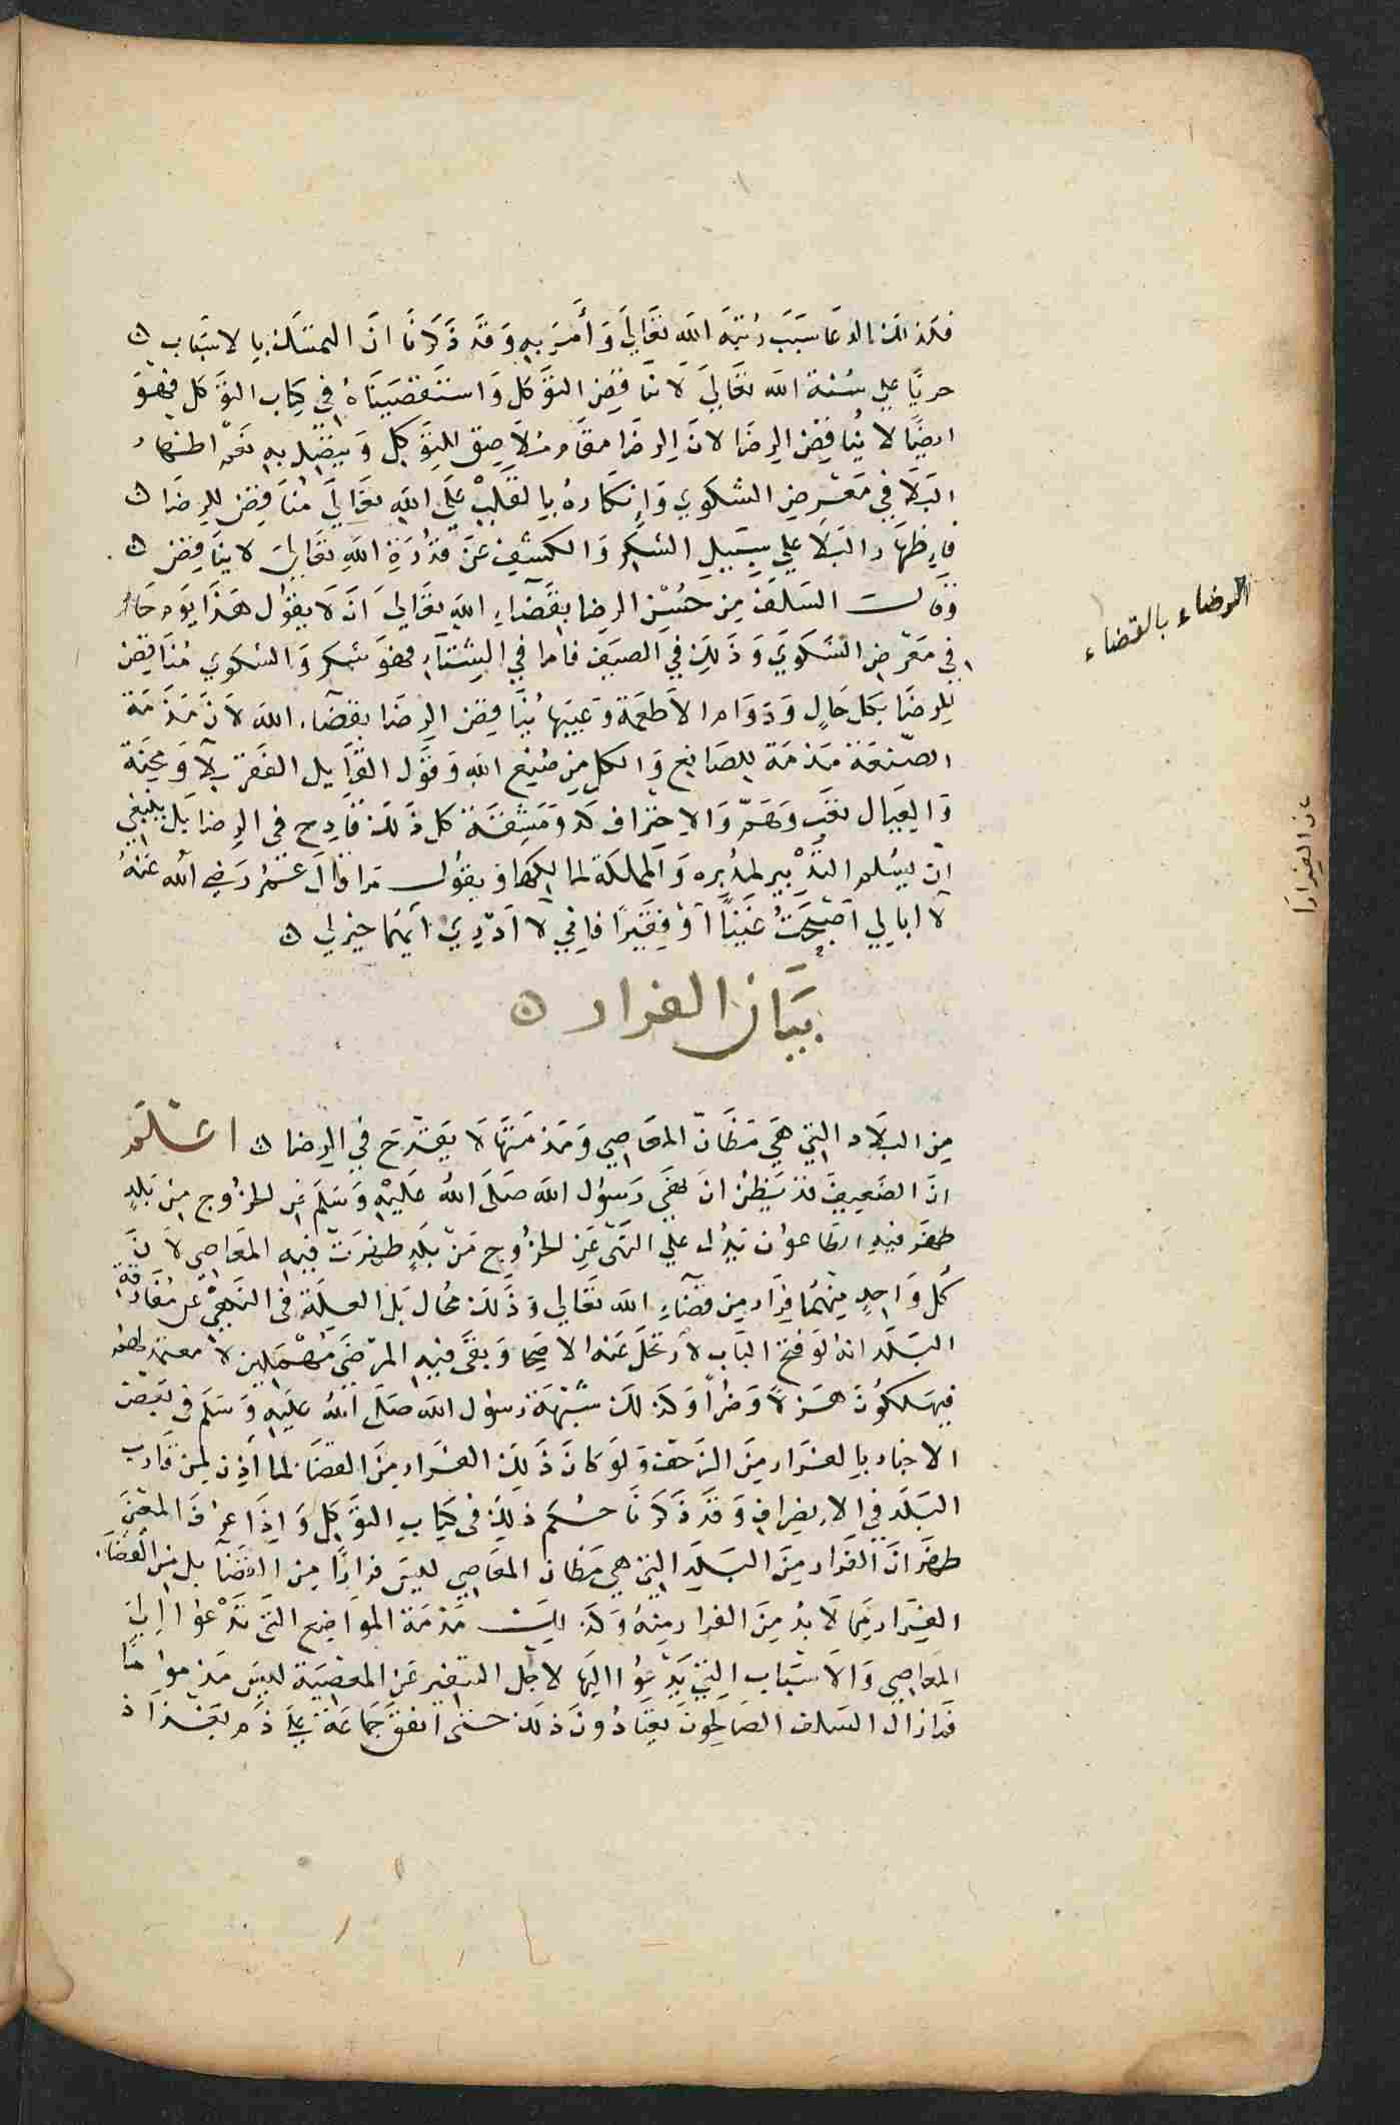 فكذلك الدعا سبب رتبه الله تعالى وأمر به وقد ذكرنا ان التمسك بالاسباب ه
جريا علي سنة الله تعالى لا تناقض التوكل واستقصيناه في كتاب التوكل فهو
ايضا لا يناقض الرضا لان الرضا مقام ملاصق للتوكل ويتصل به نعم اظهار
البلا في معرض الشكوي وإنكاره بالقلب على الله تعالى مناقض للرضا ه
فإظهار البلا علي سبيل الشكر والكشف عن قدرة الله تعالى لا يناقض ه
وقالت السلف من حسن الرضا بقضاء الله تعالى ان لا يقول هذا يوم حار
في معرض الشكوي وذلك في الصيف فاما في الشتاء فهو شكر والشكوي مناقض
للرضا بكل حال وذوام الاطعمة وعيبها يناقض الرضا بقضاء الله لان مذمة
الصنعة مذمة للصانع والكل من صنع الله وقول القايل الفقر بلا ومحنة
والعيال تعب وهم والاحتراف كد ومشقة كل ذلك قادح في الرضا بل ينبغي
ان يسلم التدبير لمدبره والمملكة لمالكها ويقول ما قال عمر رضي الله عنه
لا ابالي اصبحت غنيا أو فقيرا فاني لا أدري أيهما خير لي ه
بيان الفرار ه
من البلاد التي هي مظان المعاصي ومذمتها لا يقدح في الرضا ه اعلم
ان الضعيف قد يظن ان نهي رسول الله صلى الله عليه وسلم عن الخروج من بلد
ظهر فيه الطاعون يدل علي النهي عن الخروج من بلد ظهرت فيه المعاصي لان
كل واحد منهما فرار من قضاء الله تعالى وذلك محال بل العلة في النهي عن مفارقة
البلد انه لو فتح الباب لارتحل عنه الاصحا وبقى فيه المرضى مهملين لا متعهد لهم
فيهلكون هزلا وضرا وكذلك شبهه رسول الله صلى الله عليه وسلم في بعض
الاخبار بالفرار من الزحف ولو كان ذلك الفرار من القضا لما أذن لمن قارب
البلد في الانصراف وقد ذكرنا حكم ذلك في كتاب التوكل وإذا عرف المعنى
ظهر ان الفرار من البلد التي هي مظان المعاصي ليس فرارا من القضا بل من القضا
الفرار مما لا بد من الفرار منه وكذلك مذمة المواضع التي تدعوا إلى
المعاصي والاسباب التي يدعوا اليها لاجل التنفير عن المعصية ليس مذموما
فما زال السلف الصالحون يعتادون ذلك حتى اتفق جماعة على ذم بغداد
الرضاء بالقضاء